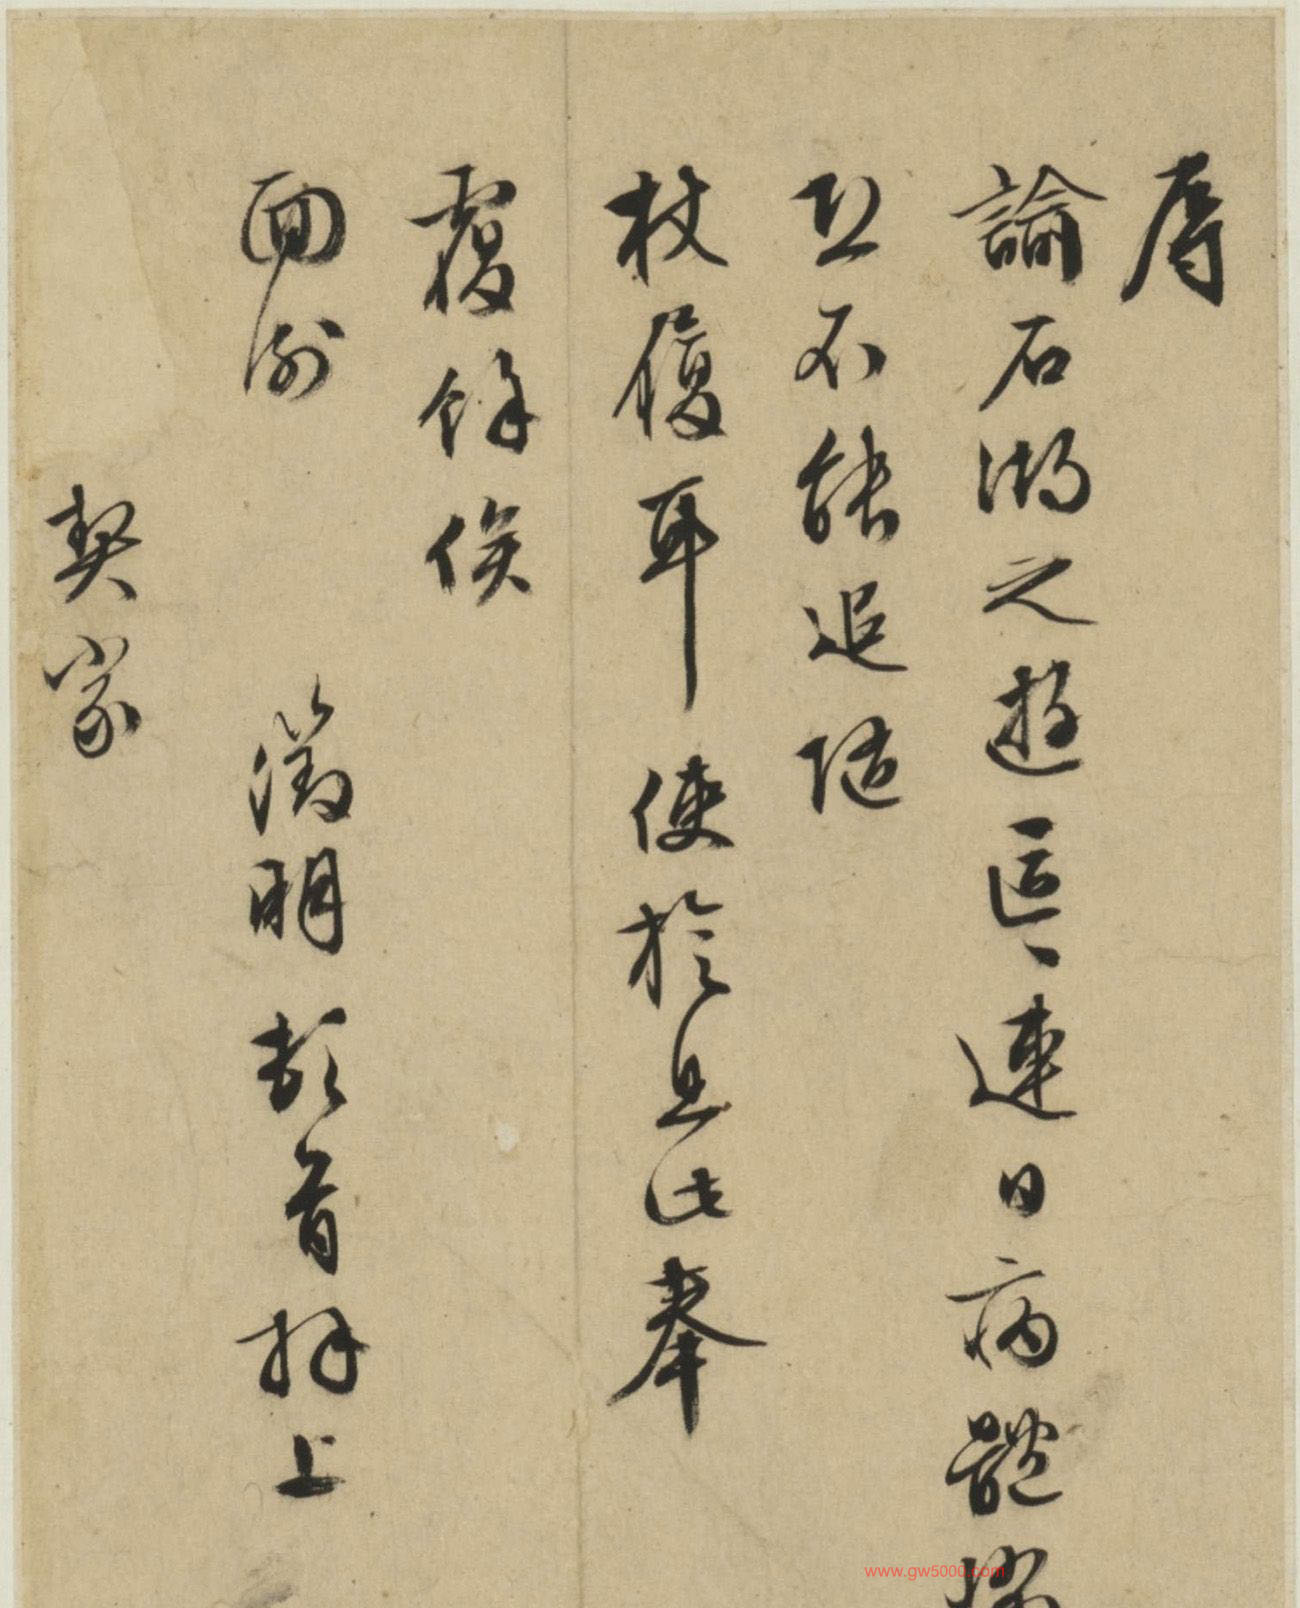 辱
諭石湖之遊連日病體
恐不能追隨
杖履耳使旋具此奉
覆餘俟
面徵明頓首拜上
契家
www.gw5000.com